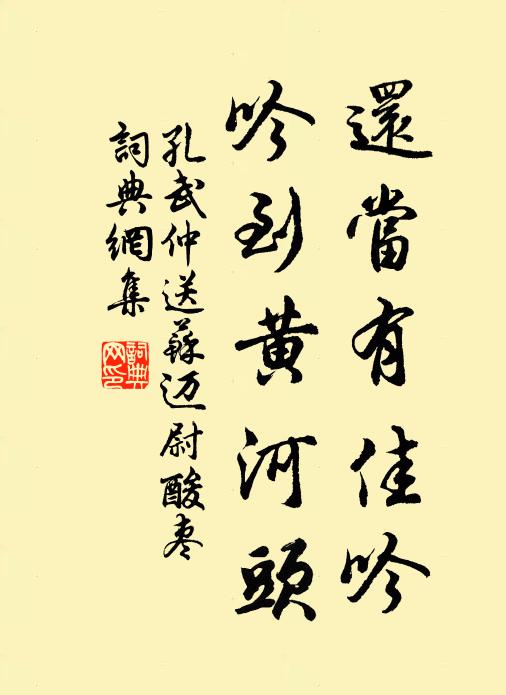 還當有佳吟
吟到黄河頭
孔武仲送蘇迈尉酸枣
詞典網集
詞典
网印